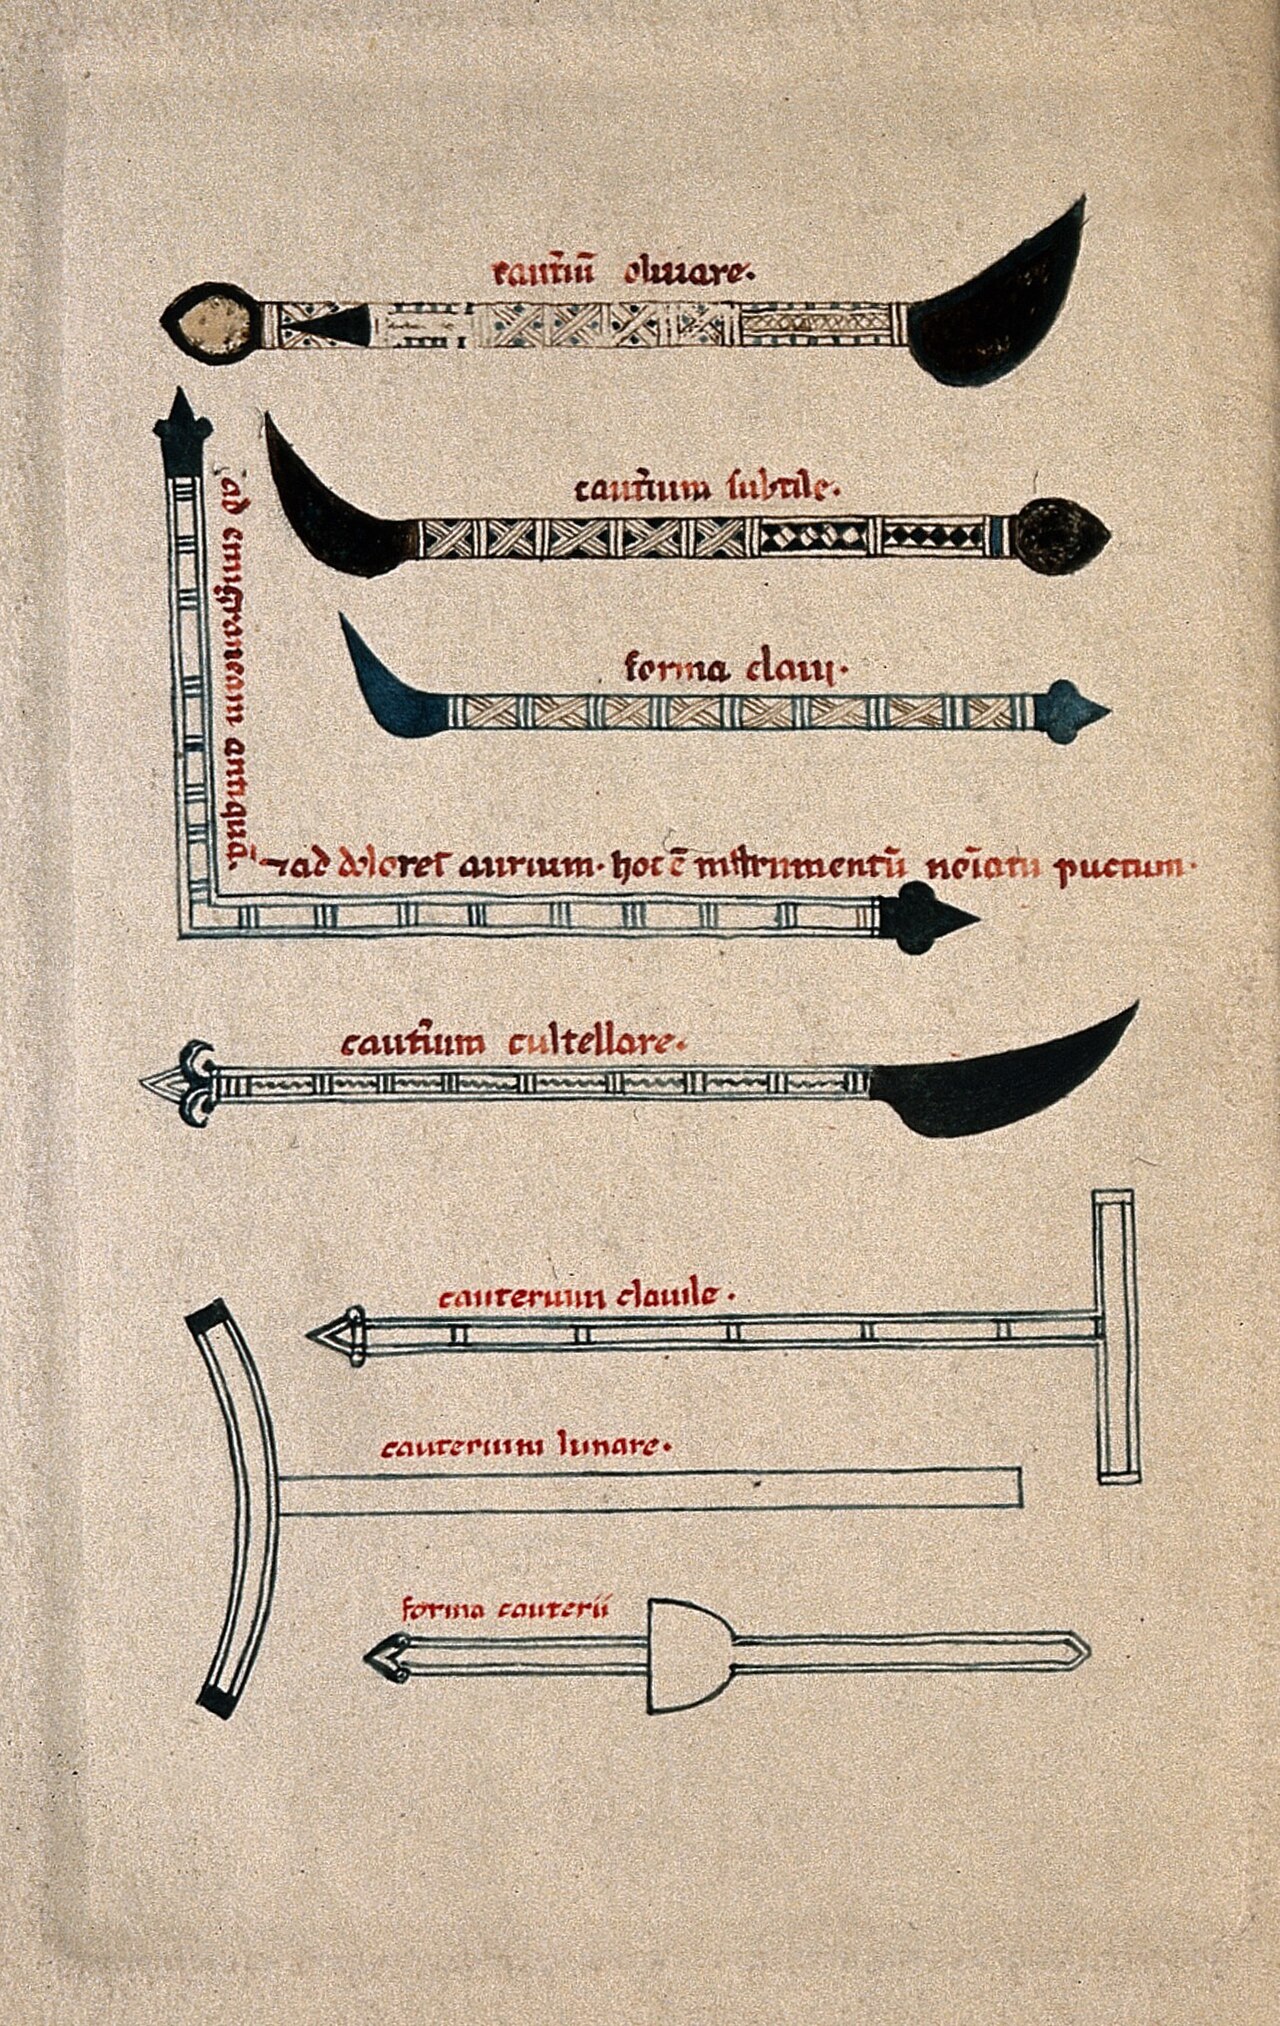 caut̃iũ oliuare.
caut̃ium subtile.
forma claui.
ad emigraneam antiquã.
⁊ ad dolores aurium. hoc ē instrumentũ noīatũ puctum.
caut̃ium cultellare.
cauterium clauile.
cauterium lunare.
forma cauterii